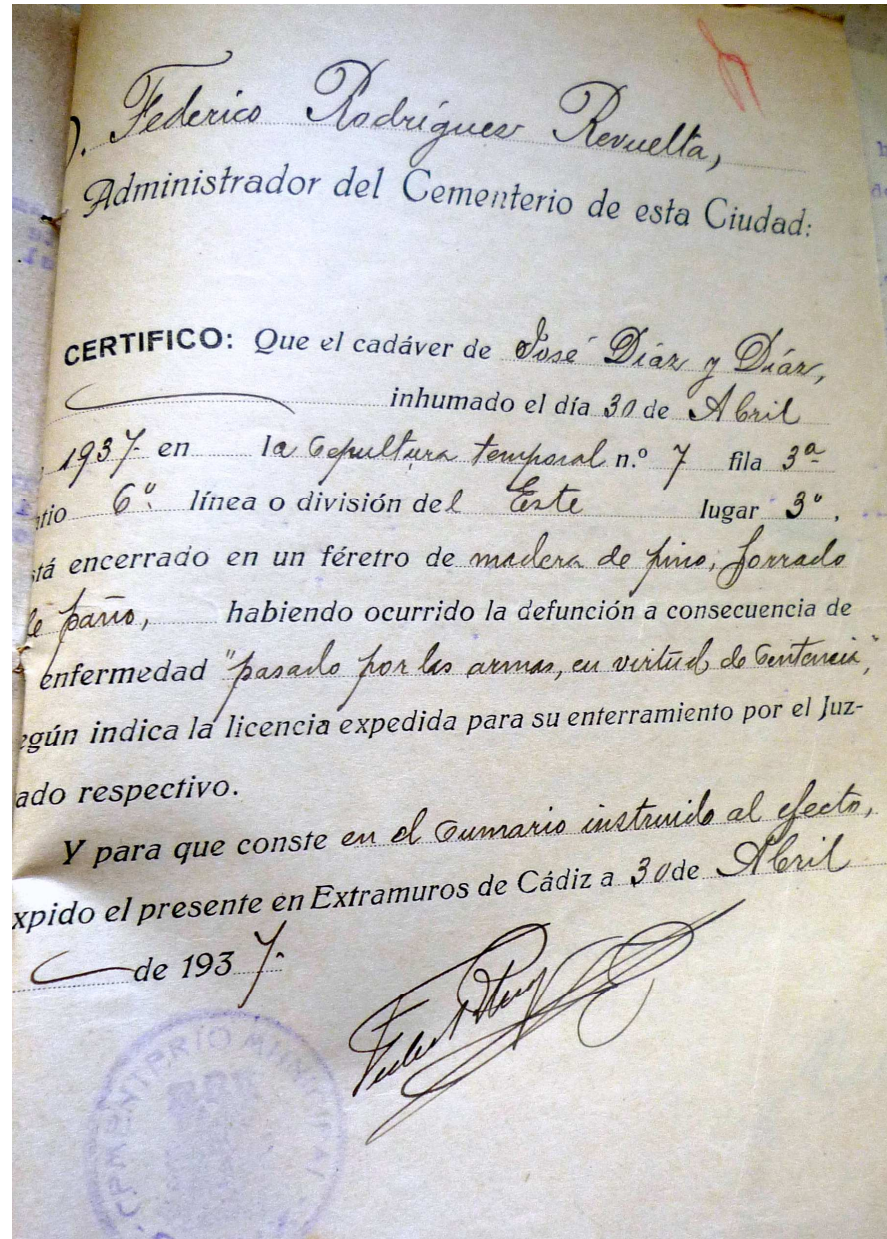 D. Federico Rodríguez Revuelta,
Administrador del Cementerio de esta Ciudad:
CERTIFICO: Que el cadáver de José Díaz y Díaz,
inhumado el día 30 de Abril
1937 en la Sepultura temporal n.º 7 fila 3ª
atio 6º línea o división del Este lugar 3º,
stá encerrado en un féretro de madera de pino, forrado
de paño, habiendo ocurrido la defunción a consecuencia de
enfermedad "pasado por las armas, en virtud de Sentencia",
egún indica la licencia expedida para su enterramiento por el Juz-
ado respectivo.
Y para que conste en el Sumario instruido al efecto,
xpido el presente en Extramuros de Cádiz a 30 de Abril
de 1937.
CEMENTERIO MUNICIPAL